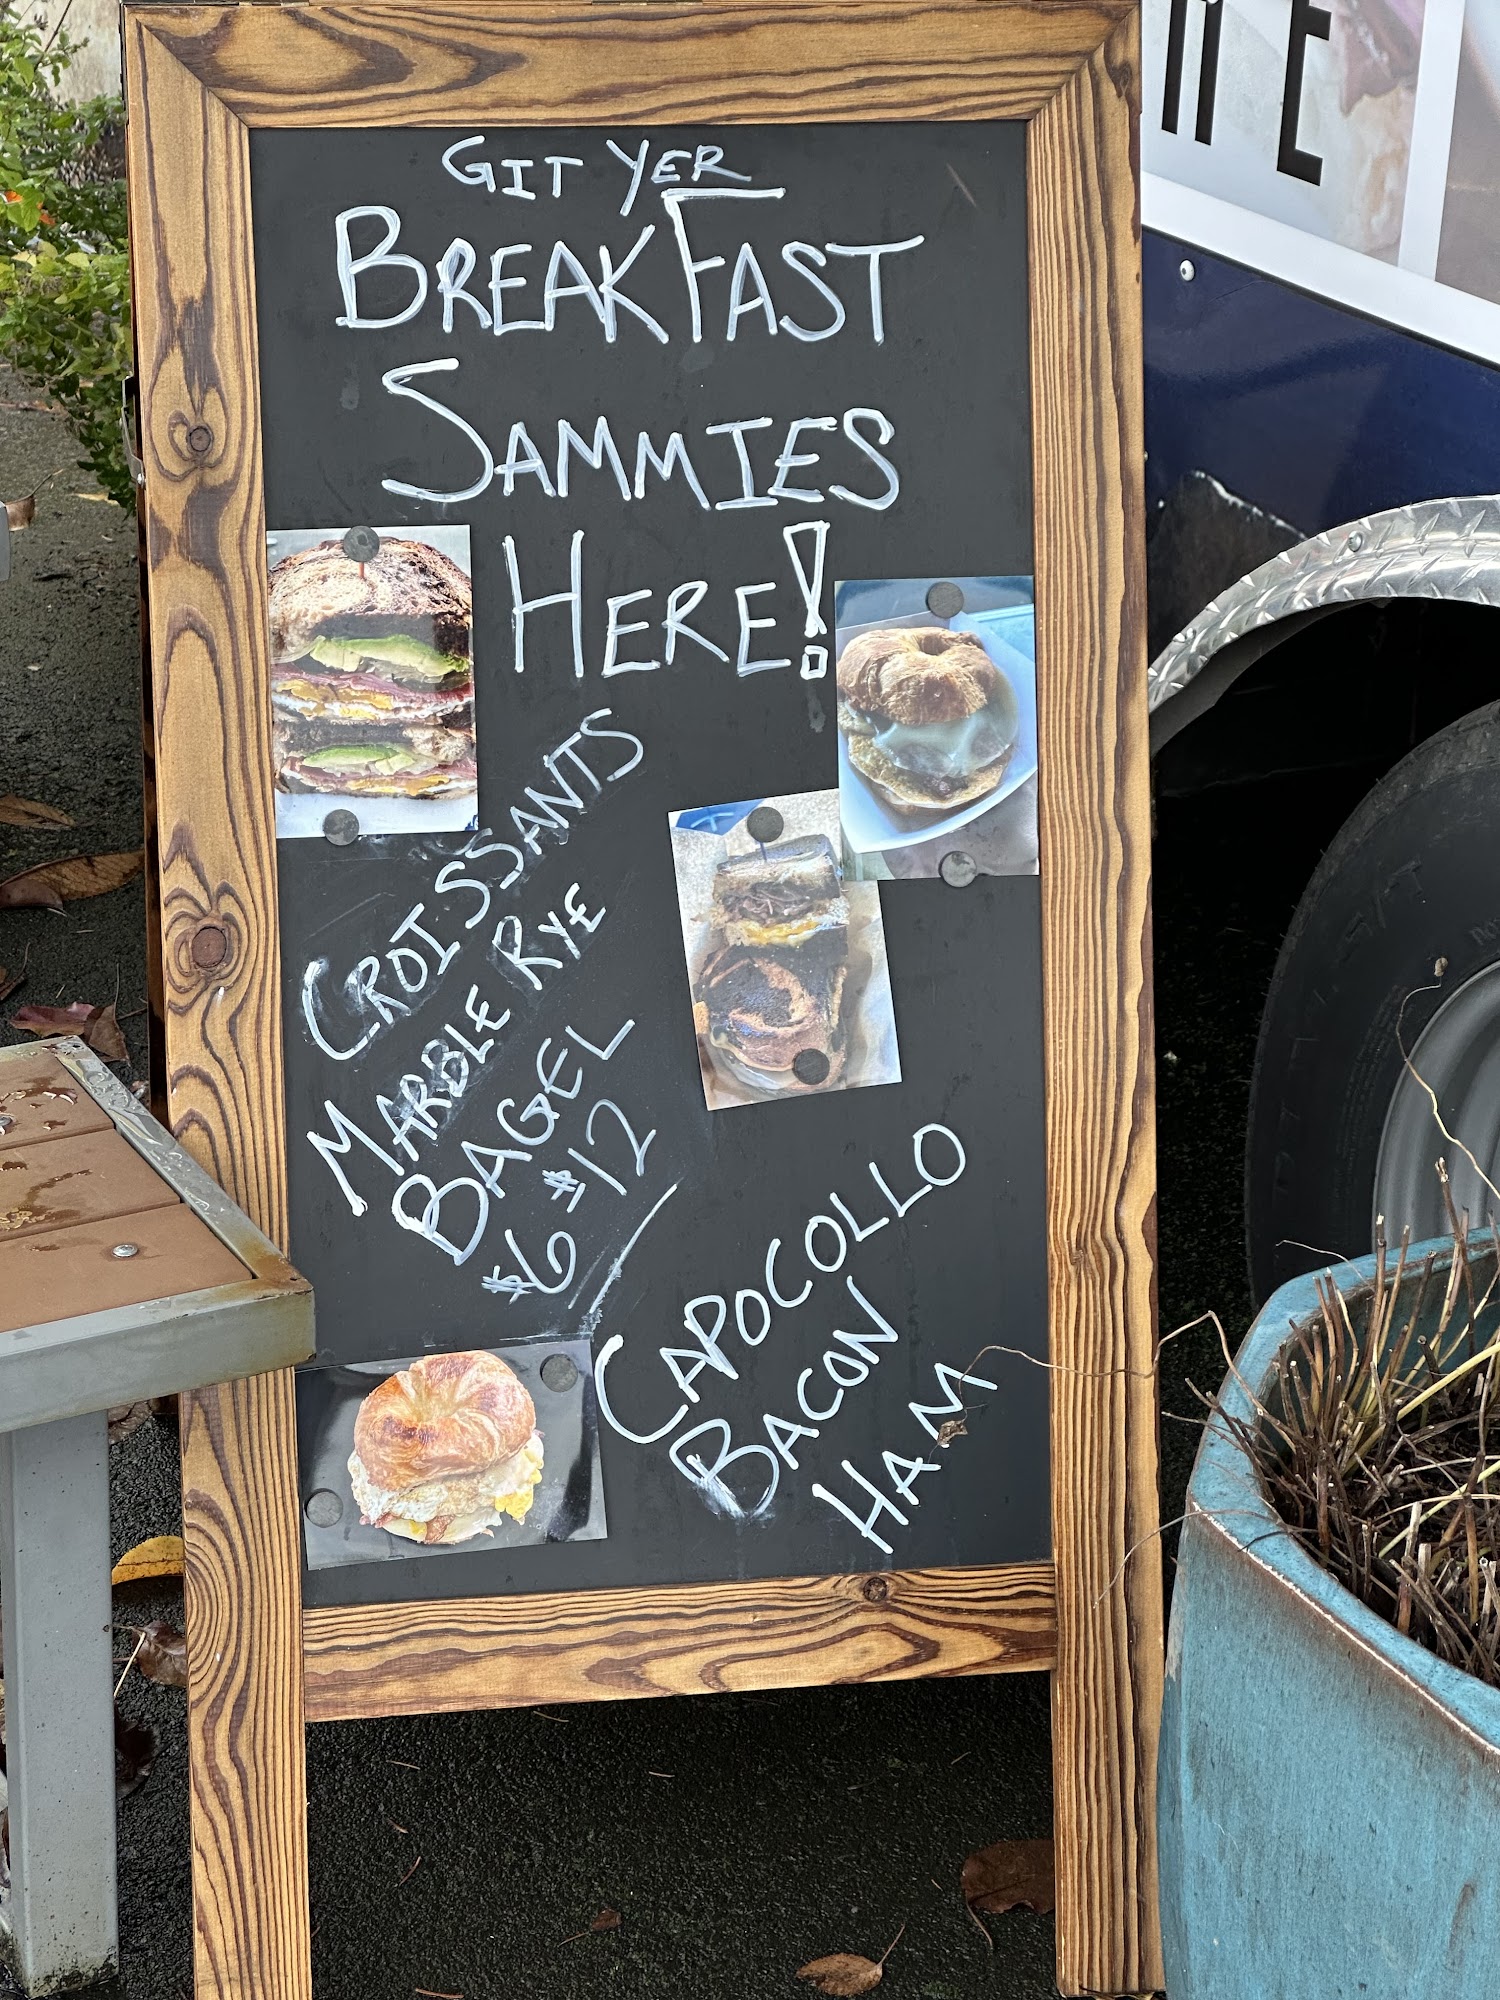 GIT YER
BREAKFAST
SAMMIES
HERE!
CROISSANTS
MARBLE RYE
BAGEL
$6 $12
CAPOCOLLO
BACON
HAM